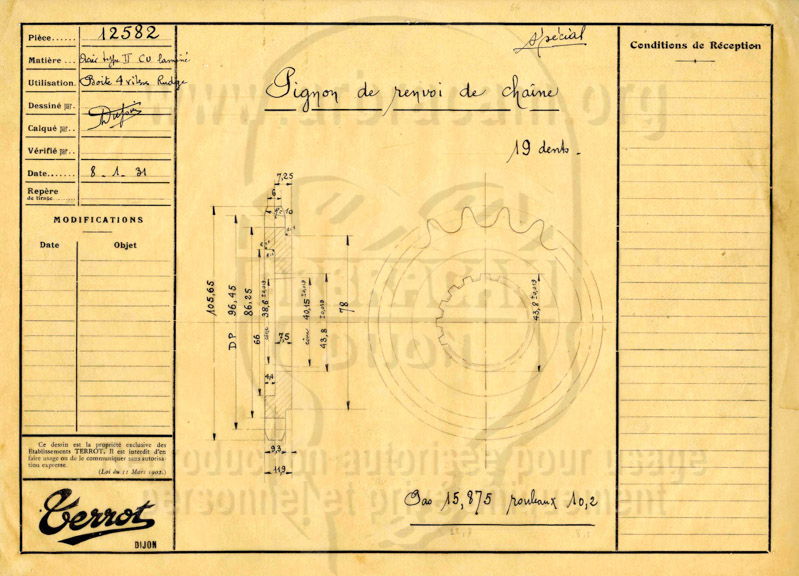 Pièce...... 12582
Matière ... Acier type II CU laminé
Utilisation. Boîte 4 vitesses Rudge
Dessiné par.
Calqué par..
Vérifié par..
Date....... 8_1_31
Repère
de tirage
MODIFICATIONS
Date Objet
Ce dessin est la propriété exclusive des
Etablissements TERROT. Il est interdit d'en
faire usage ou de le communiquer sans autorisa-
tion expresse.
(Loi du 11 Mars 1902.)
Terrot
DIJON
Spécial
Pignon de renvoi de chaîne
19 dents _
7,25
6
10
105,65
DP 96,45
86,25
66
38,6
7,5
40,15
43,8
78
43,8
4,2
9,3
11,9
Pas 15,875 rouleaux 10,2
Conditions de Réception
DIJON
reproduction autorisée pour usage
personnel et privé uniquement